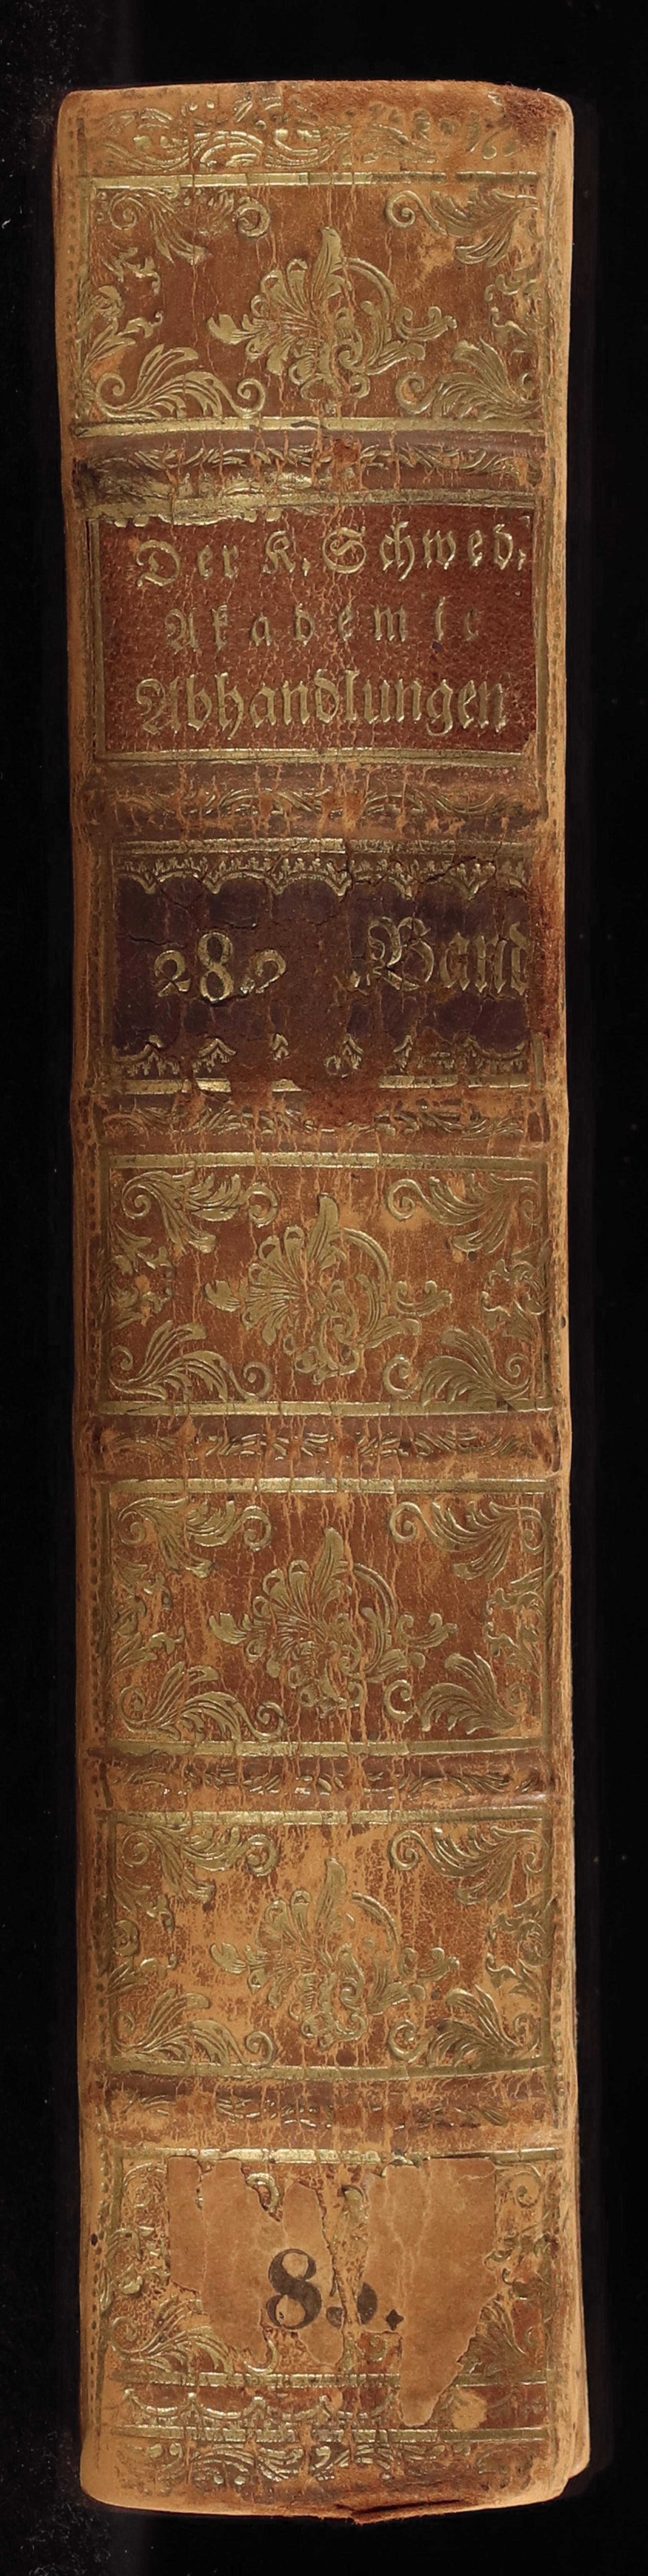 Der K. Schwed.
Akademie
Abhandlungen
28. Band